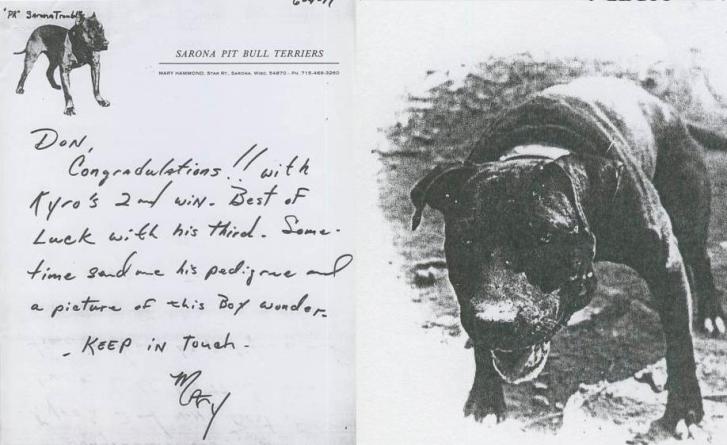 "PR" Sarona Trouble
SARONA PIT BULL TERRIERS
MARY HAMMOND, STAR RT., SARONA, WISC. 54870 - PH. 715-469-3260
DON,
Congradulations!! with
Kyro's 2nd win. Best of
Luck with his third. Some-
time send me his pedigree and
a picture of this Boy wonder.
- KEEP IN Touch -
Mary